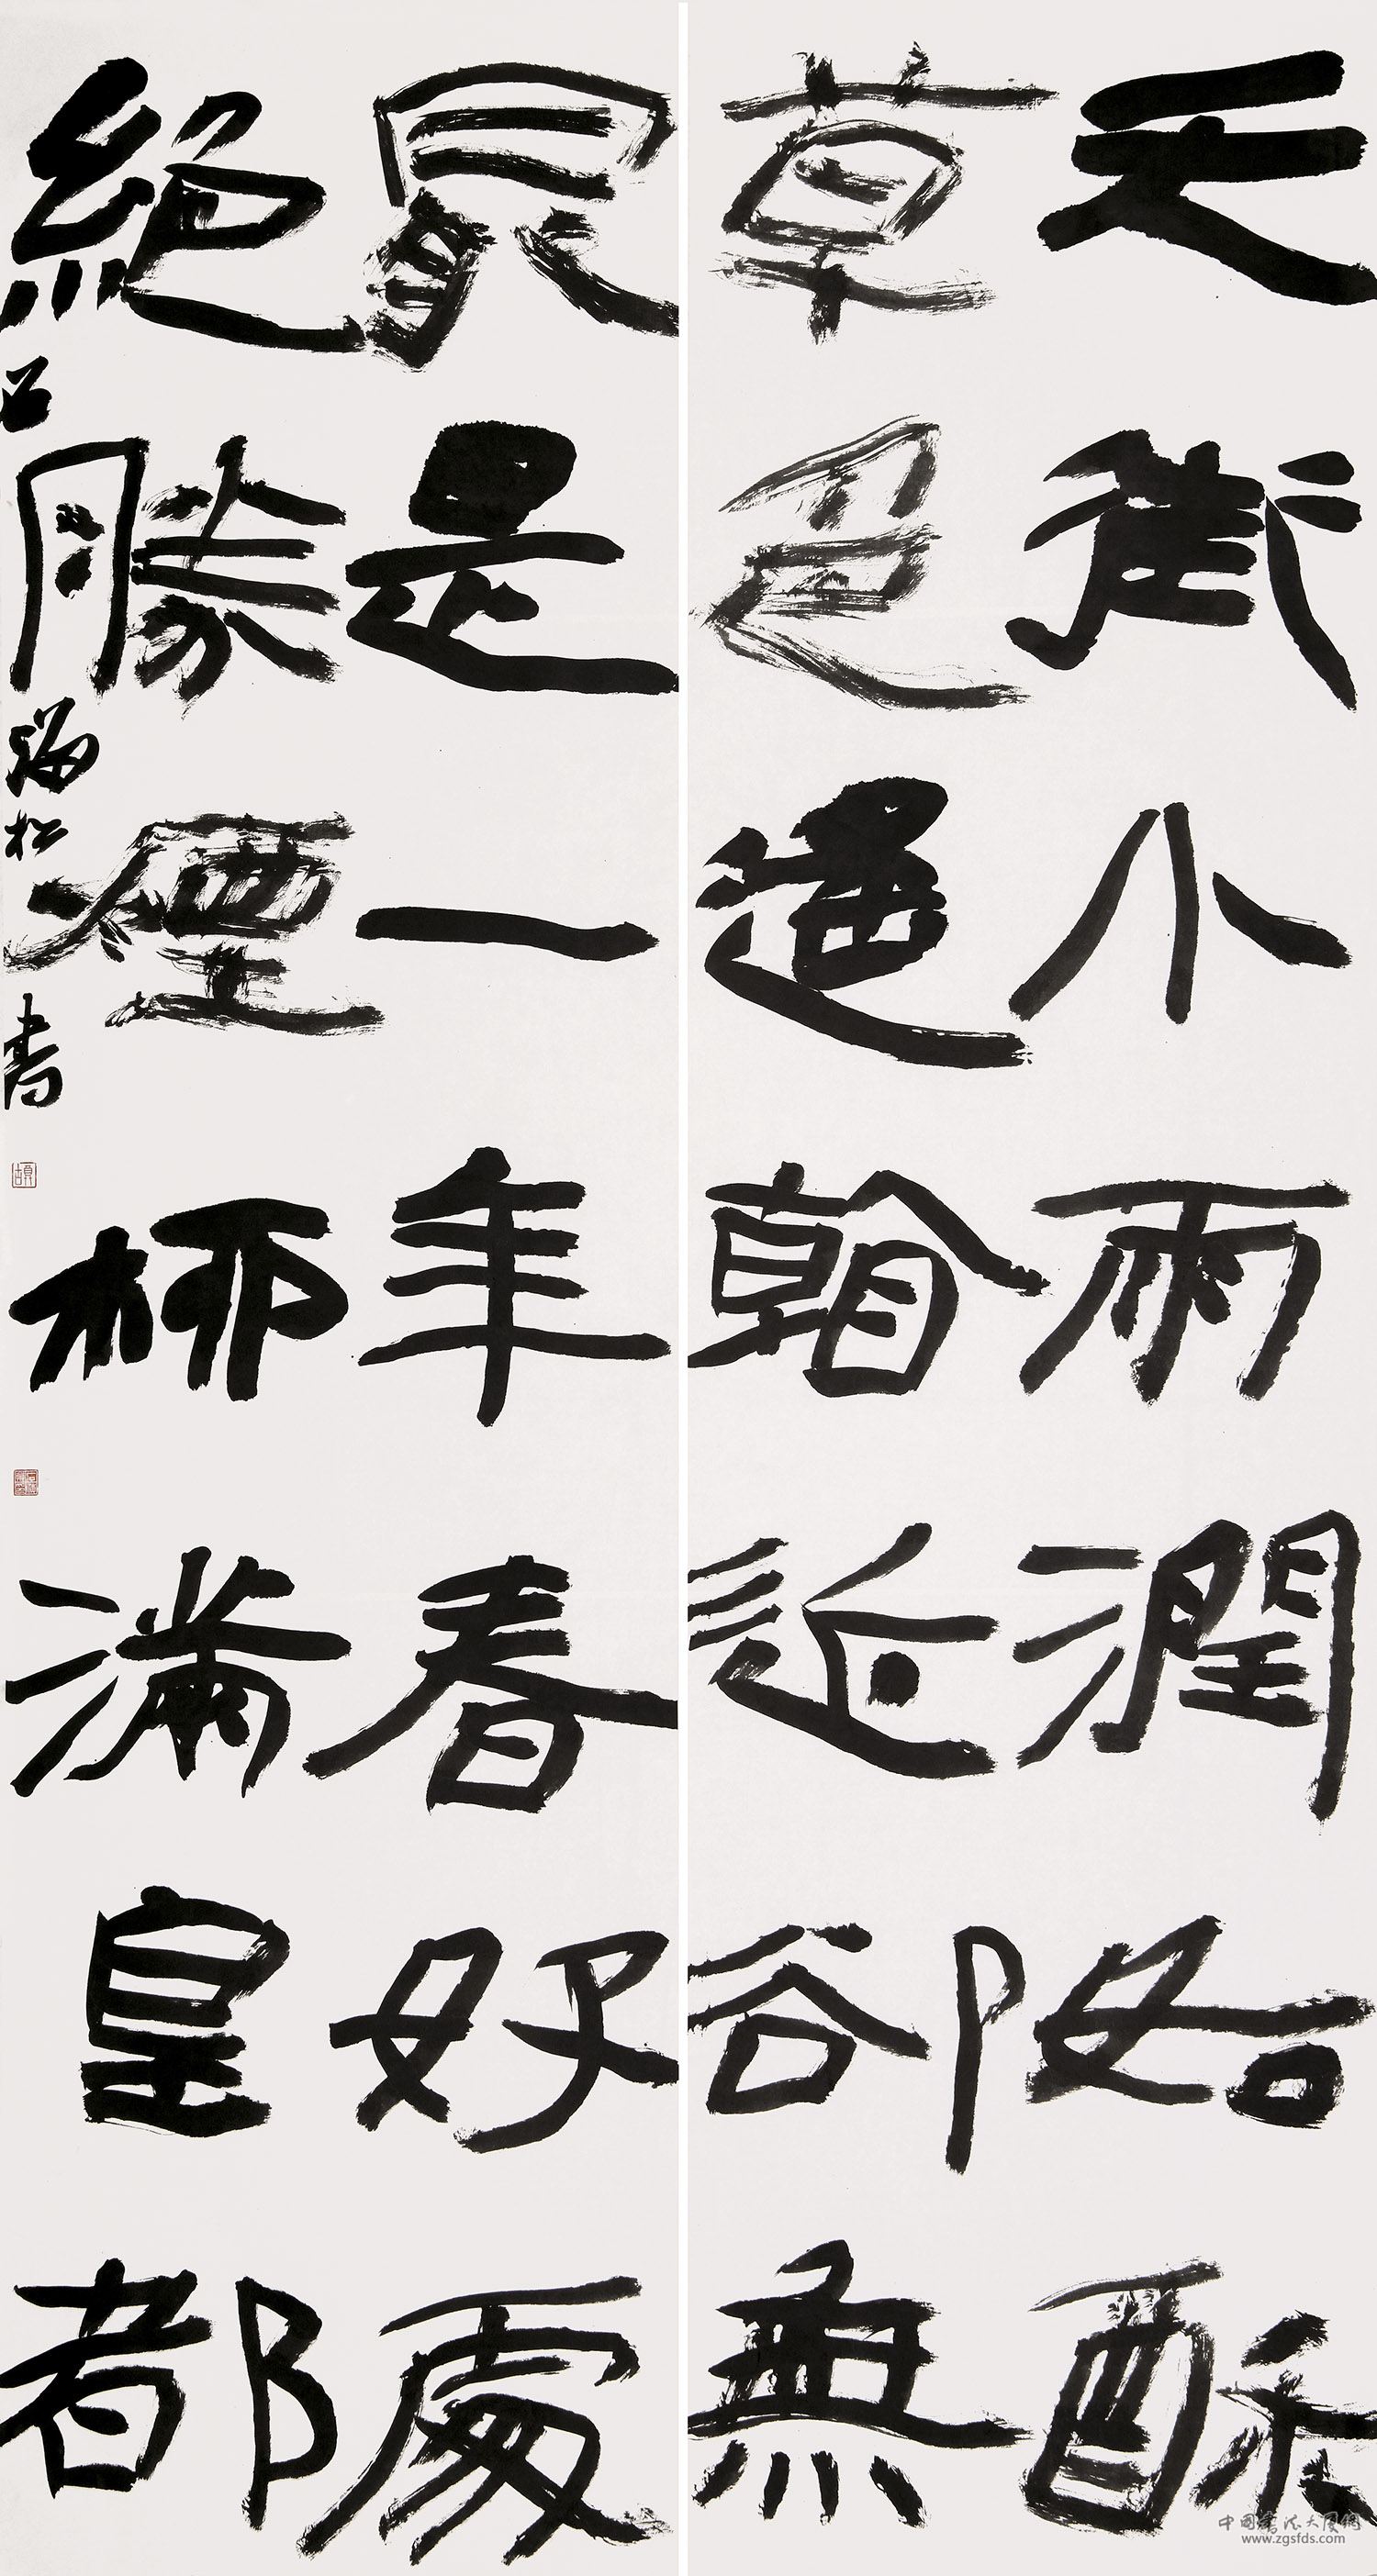 天街小雨潤如酥
草色遙看近卻無
最是一年春好處
絕勝煙柳滿皇都
松書
中国書法大厦網
www.zgsfds.com